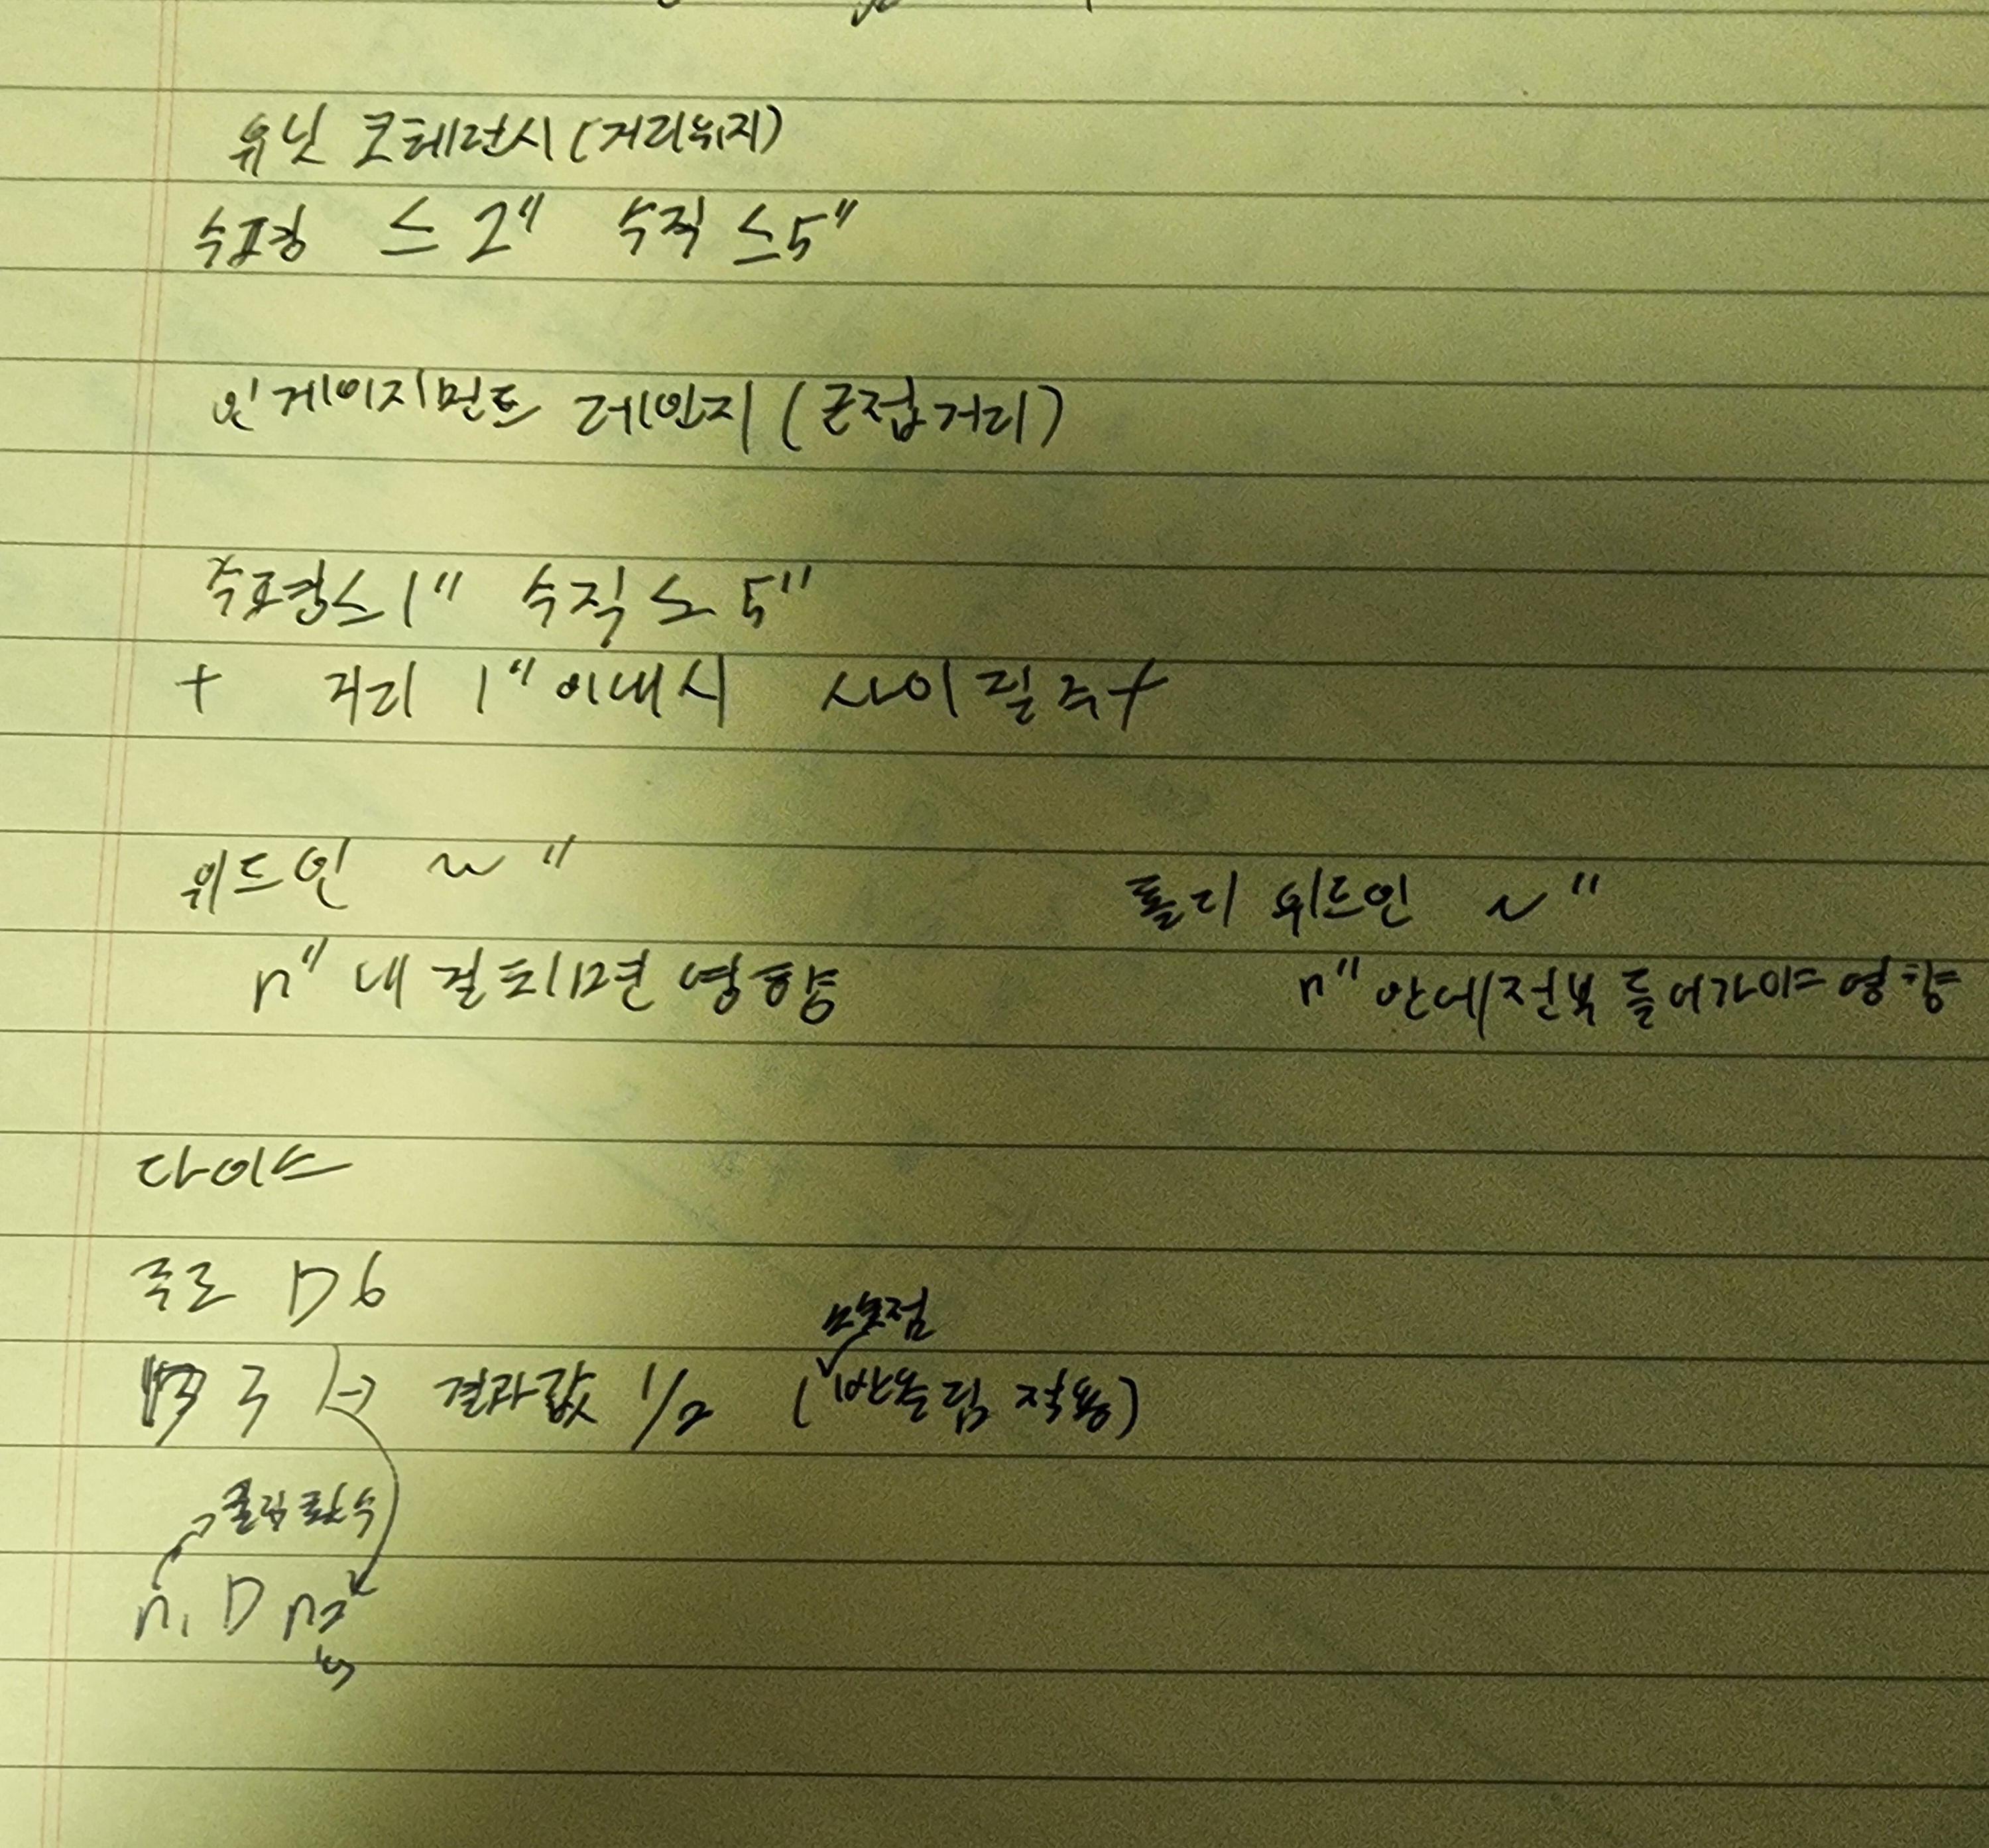 유닛 코헤런시 (거리유지)
수평 ≤ 2" 수직 ≤ 5"
인게이지먼트 레인지 (근접거리)
수평 ≤ 1" 수직 ≤ 5"
+ 거리 1" 이내시 사이
위드인 ~"
홀리 위드인 ~"
n" 내 걸치면 영향
n" 안에 전부 들어가야 영향
다이스
주로 D6
소숫점
D3 구 결과값 1/2 (반올림 적용)
굴림 횟수
n₁ D n₂